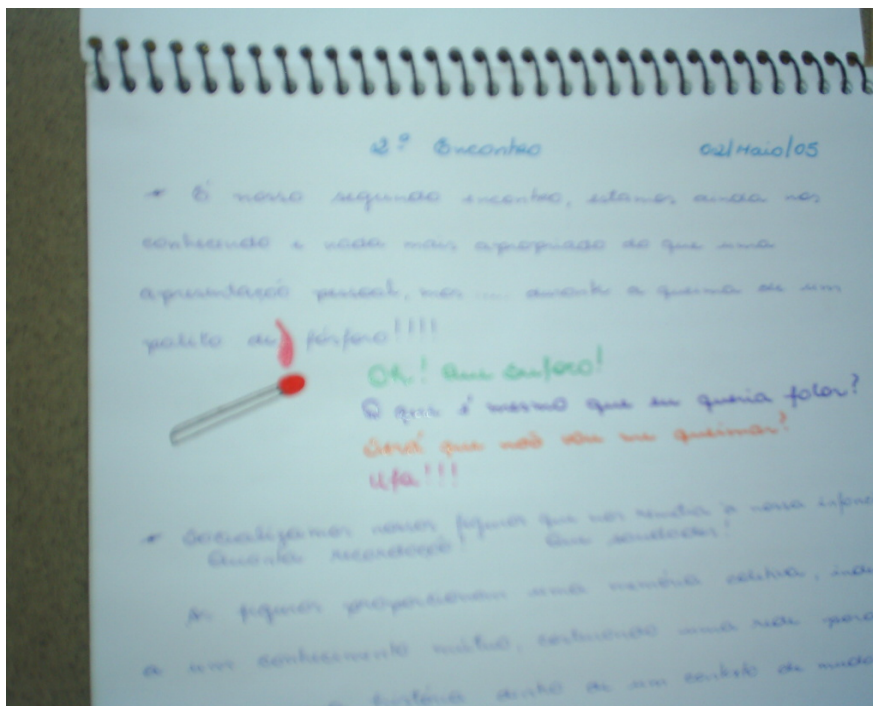 2º Encontro 02/Maio/05
* É nosso segundo encontro, estamos ainda nos
conhecendo e nada mais apropriado do que uma
apresentação pessoal, mas .... durante a queima de um
palito de fósforo!!!!
Oh! Que sufoco!
O que é mesmo que eu queria falar?
Será que não vou me queimar?
Ufa!!!
* Socializamos nossas figuras que nos a nossa
Quanta recordação! Que saudades!
As figuras proporcionam uma memória coletiva,
a um conhecimento mútuo, costurando uma rede para
história dentro de um contexto de